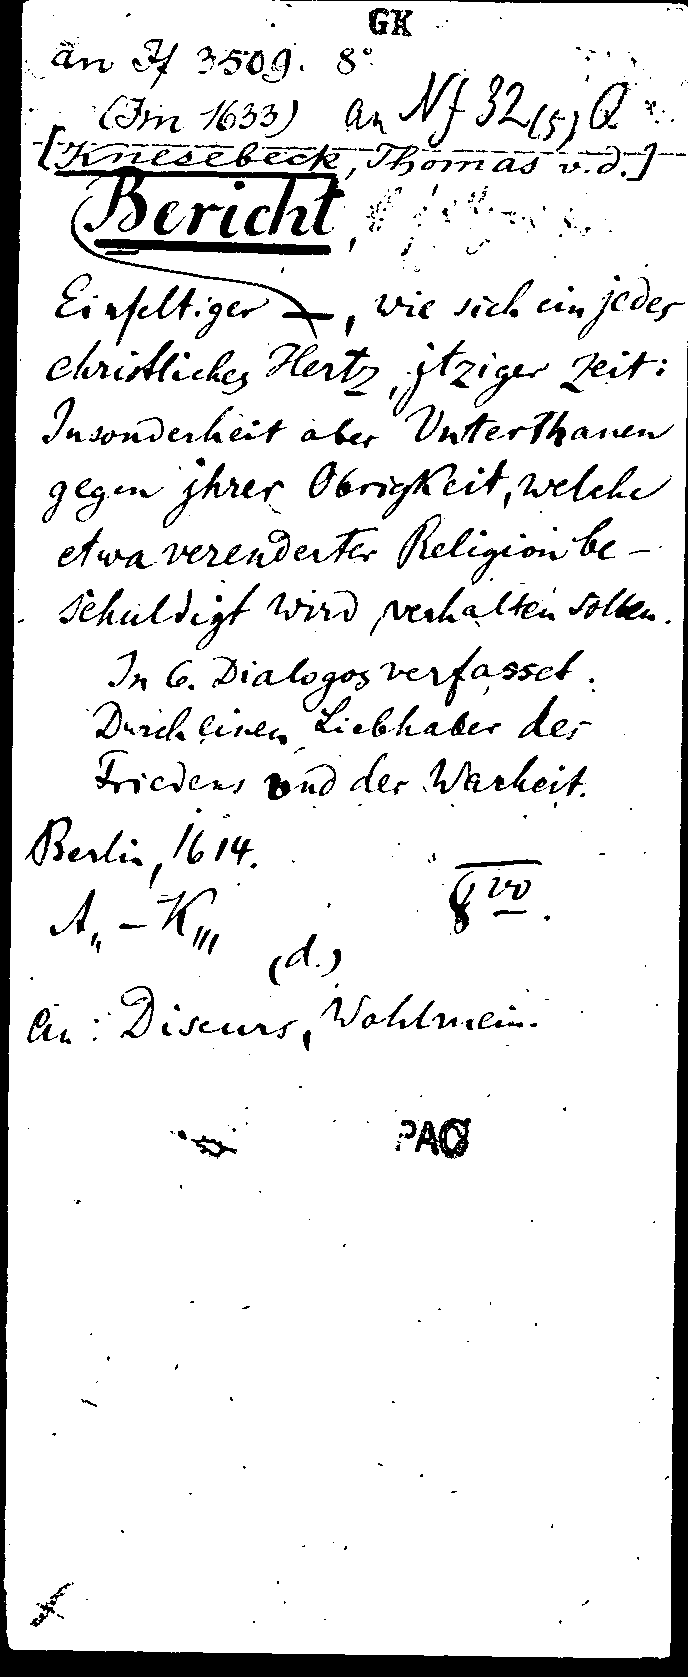 GK
an If 3509. 8°
(Im 1633) an Nf 32 (5) Q
[Knesebeck, Thomas v. d.]
Bericht,
Einfeltiger —, wie sich ein jedes
christliches Hertz, jtziger Zeit:
Insonderheit aber Vnterthanen
gegen jhrer Obrigkeit, welche
etwa verenderter Religion be-
schuldigt wird, verhalten sollen.
In 6. Dialogos verfasset.
Durch einen Liebhaber des
Friedens vnd der Warheit.
Berlin, 1614.
8vo.
A,, – K,,,
(d.)
An: Discurs, Wohlmein.
PAO